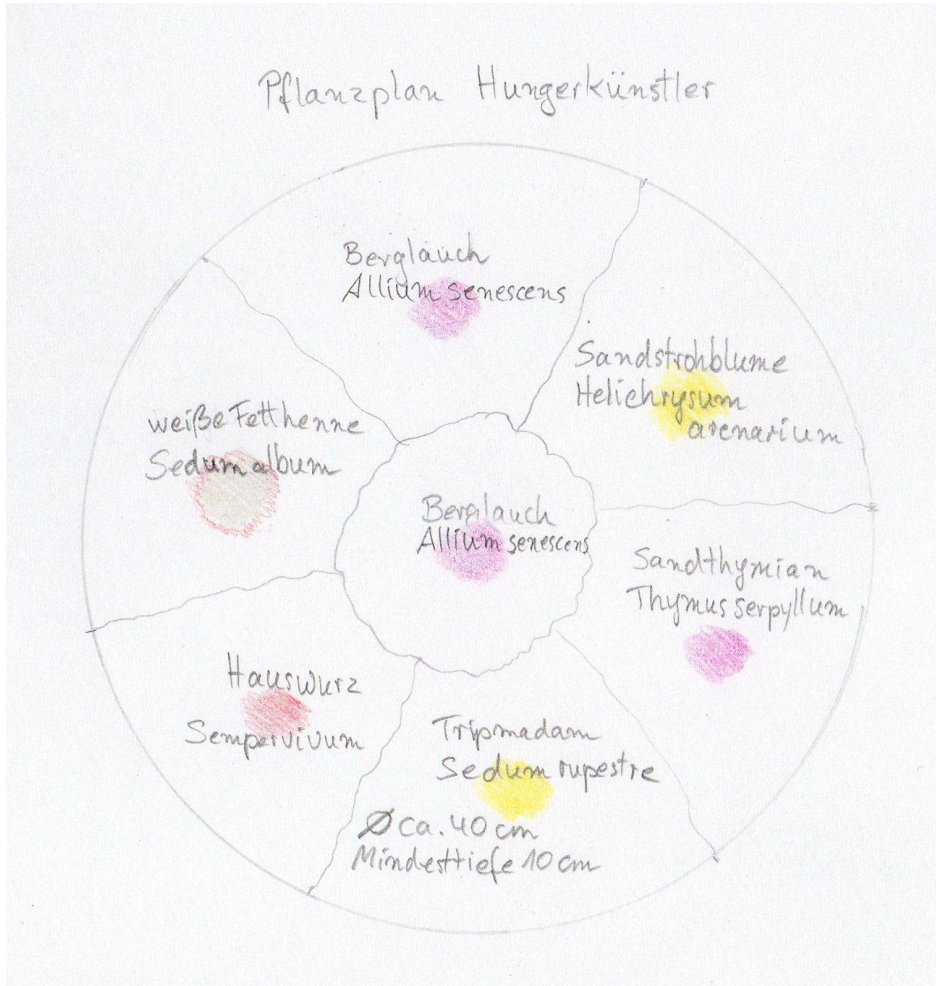 Pflanzplan Hungerkünstler
Berglauch
Allium senescens
Sandstrohblume
Helichrysum
arenarium
weiße Fetthenne
Sedum album
Berglauch
Allium senescens
Sandthymian
Thymus serpyllum
Hauswurz
Sempervivum
Tripmadam
Sedum rupestre
Ø ca. 40 cm
Mindesttiefe 10 cm